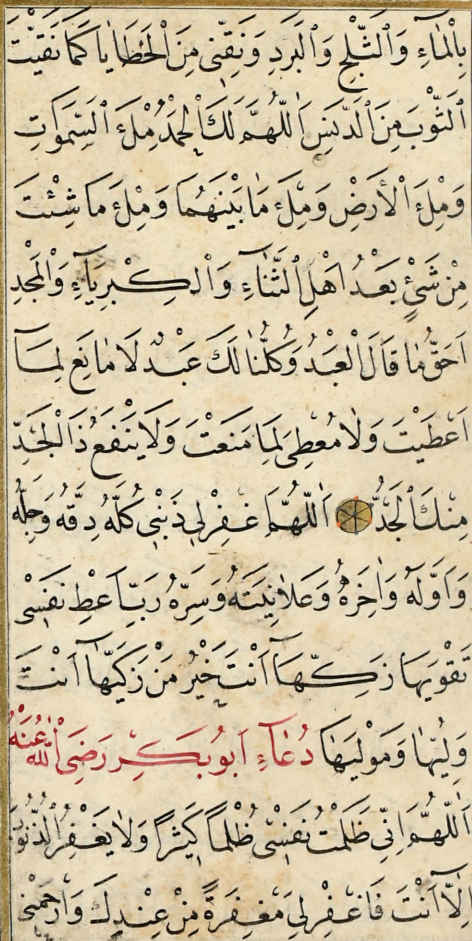 بِالْمَاءِ وَالثَّلْجِ وَالْبَرَدِ وَنَقِّنِي مِنَ الْخَطَايَا كَمَا نَقَّيْتَ
الثَّوْبَ مِنَ الدَّنَسِ اَللّٰهُمَّ لَكَ الْحَمْدُ مِلْءَ السَّمٰوَاتِ
وَمِلْءَ الْأَرْضِ وَمِلْءَ مَا بَيْنَهُمَا وَمِلْءَ مَا شِئْتَ
مِنْ شَيْءٍ بَعْدُ اَهْلِ الثَّنَاءِ وَالْكِبْرِيَاءِ وَالْمَجْدِ
اَحَقُّ مَا قَالَ الْعَبْدُ وَكُلُّنَا لَكَ عَبْدٌ لَا مَانِعَ لِمَا
اَعْطَيْتَ وَلَا مُعْطِيَ لِمَا مَنَعْتَ وَلَا يَنْفَعُ ذَا الْجَدِّ
مِنْكَ الْجَدُّ اَللّٰهُمَّ اغْفِرْ لِي ذَنْبِي كُلَّهُ دِقَّهُ وَجِلَّهُ
وَاَوَّلَهُ وَاٰخِرَهُ وَعَلَانِيَتَهُ وَسِرَّهُ رَبِّ اَعْطِ نَفْسِي
تَقْوٰيهَا زَكِّهَا اَنْتَ خَيْرُ مَنْ زَكّٰيهَا اَنْتَ
وَلِيُّهَا وَمَوْلٰيهَا دُعَاءِ اَبُو بَكِرِ رَضِيَ اللّٰهُ عَنْهُ
اَللّٰهُمَّ اِنِّي ظَلَمْتُ نَفْسِي ظُلْمًا كَثِيرًا وَلَا يَغْفِرُ الذُّنُوبَ
اِلَّا اَنْتَ فَاغْفِرْ لِي مَغْفِرَةً مِنْ عِنْدِكَ وَارْحَمْنِي